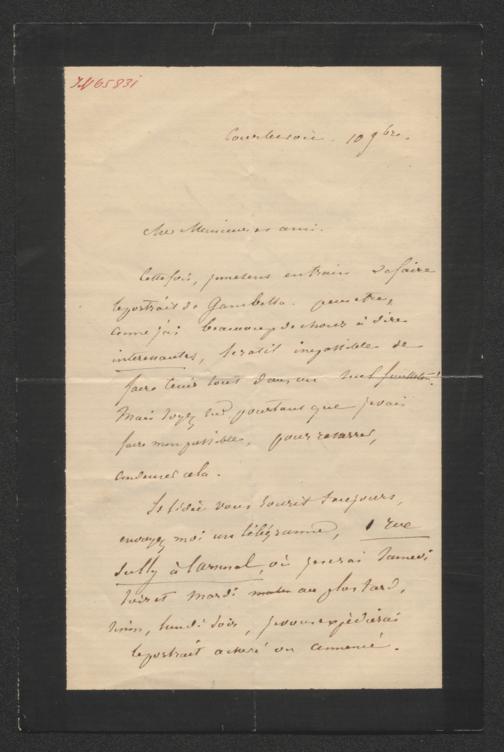 Courbevoie. 10 9bre.
Cher Monsieur et ami.
Cette fois, je me sens en train de faire
le portrait de Gambetta. peut être,
comme j'ai beaucoup de choses à dire
interessantes, serait il impossible de
faire tenir tout dans un seul feuilleton!
Mais soyez sûr pourtant que je vais
faire mon possible, pour resserrer,
condenser cela.
Si l'idée vous sourit toujours,
envoyez moi un télégramme, 1 rue
Sully à l'arsenal, où je serai Samedi
soir et mardi matin au plus tard,
sinon, lundi soir, je vous expédierai
le portrait achevé ou commencé.